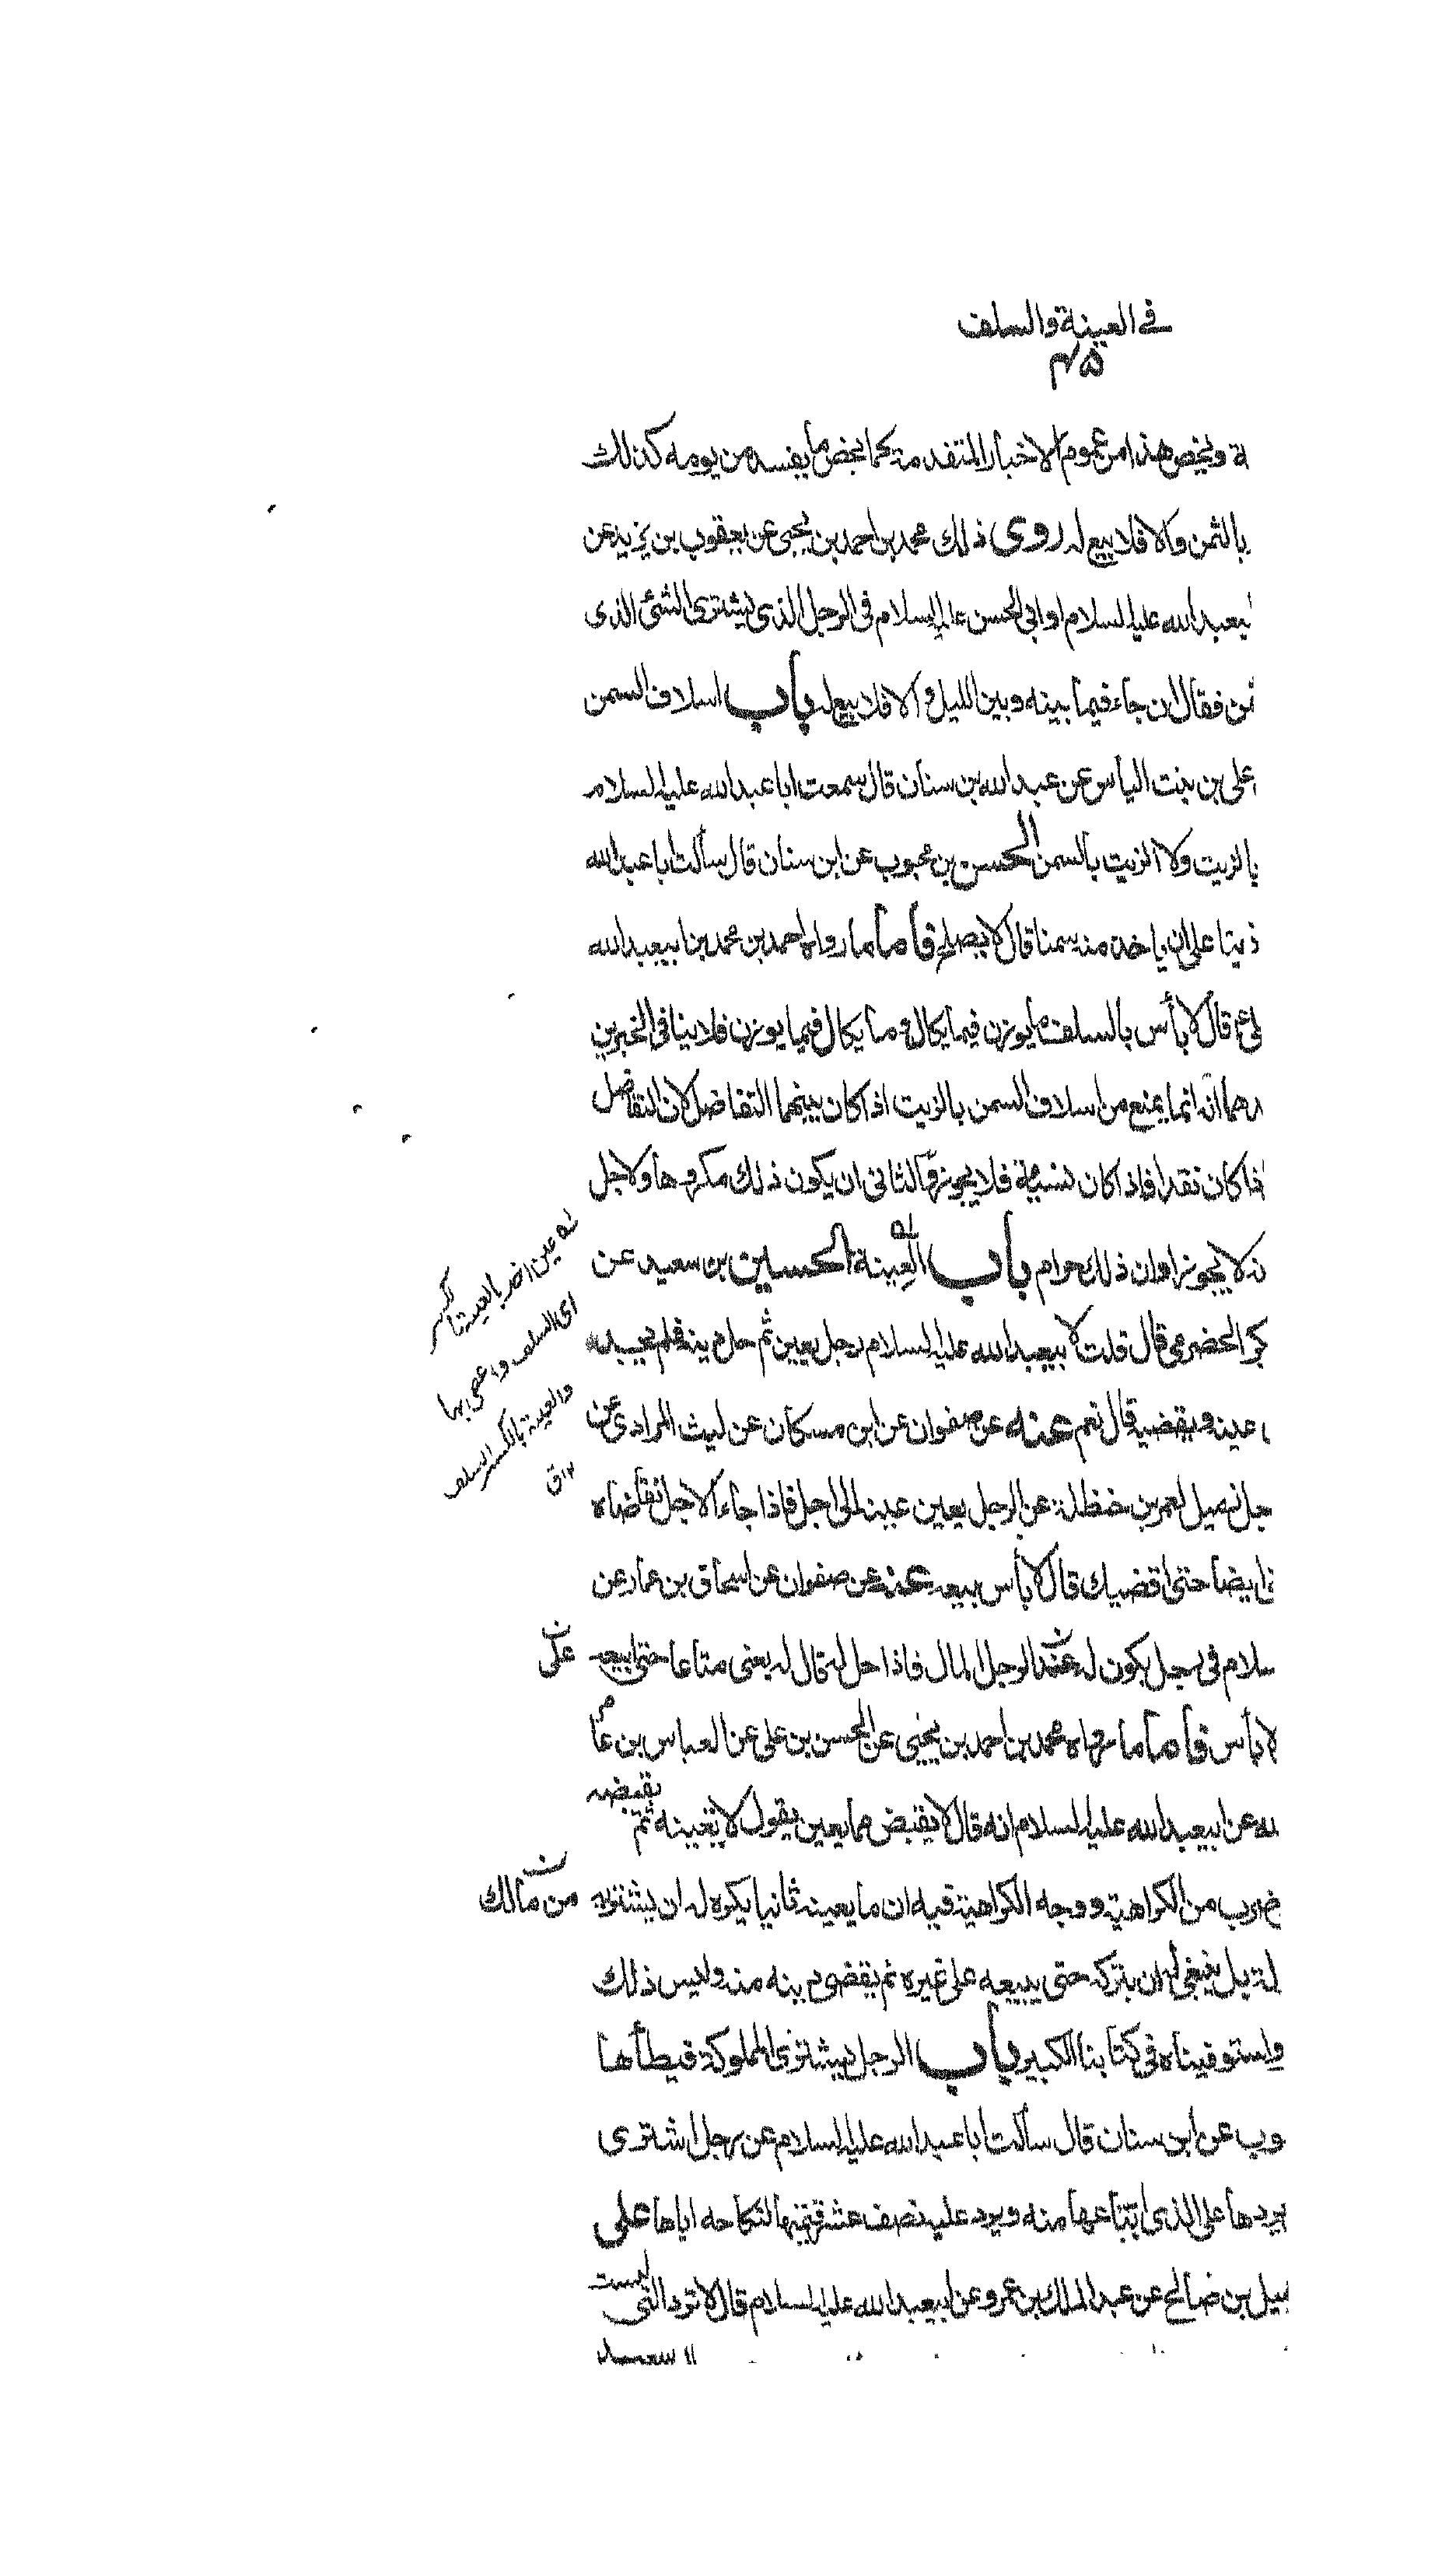 في العينة والسلف
٤٥
ة ويخص هذا من عموم الاخبار المتقدمة كما يخص ما يفسد من يومه كذلك
بالثمن والا فلا بيع له روى ذلك محمد بن احمد بن يحيى عن يعقوب بن يزيد عن
يعبد الله عليه السلام او ابي الحسن عليه السلام في الرجل الذي يشترى الشئ الذى
ثمن فقال ان جاء فيما بينه وبين الليل والا فلا بيع له باب اسلاف السمن
على بن بنت الياس عن عبد الله بن سنان قال سمعت ابا عبد الله عليه السلام
بالزيت ولا الزيت بالسمن الحسن بن محبوب عن ابن سنان قال سألت ابا عبد الله
زيتا على ان ياخذ منه سمنا قال لا يصلح فاما ما رواه احمد بن محمد بن ابيعبد الله
قال لا بأس بالسلف ما يوزن فيما يكال وما يكال فيما يوزن فلا ينافى الخبرين
انه انما يمنع من اسلاف السمن بالزيت اذا كان بينهما التفاضل لان التفاضل
اذا كان نقدا فاذا كان نسيئة فلا يجوز والثانى ان يكون ذلك مكروها ولاجل
لا يجوز او ان ذلك حرام باب العينة الحسين بن سعيد عن
بكر الحضرمي قال قلت لابيعبد الله عليه السلام رجل يعين ثم حل دينه فلم يجد
عينه ويقضيه قال نعم عنه عن صفوان عن ابن مسكان عن ليث المرادى عن
جل زميل لعمر بن حنظلة عن الرجل يعين عينة الى اجل فاذا جاء الاجل تقاضاه
ايضا حتى اقضيك قال لا بأس ببيعه عنه عن صفوان عن اسحاق بن عمار عن
سلام في رجل يكون له عند الرجل المال فاذا حل له قال له بعنى متاعا حتى ابيعه
على
لا بأس فاما ما رواه محمد بن احمد بن يحيى عن الحسن بن على عن العباس بن عامر
لله عن ابيعبد الله عليه السلام انه قال لا يقبض مما يعين يقول لا تعينه ثم يقبضه
ضرب من الكراهية ووجه الكراهية فيه ان ما يعينه ثانيا يكره له ان يشتريه
من مالك
بل ينبغى له ان يتركه حتى يبيعه على غيره ثم يقضى دينه منه وليس ذلك
واستوفيناه في كتابنا الكبير باب الرجل يشترى المملوكة فيطأها
وب عن ابن سنان قال سألت ابا عبد الله عليه السلام عن رجل اشترى
يردها على الذى ابتاعها منه ويرد عليه نصف عشر قيمتها لنكاحه اياها على
ميل بن صالح عن عبد الملك بن عمرو عن ابيعبد الله عليه السلام قال لا ترد التى ليست
عين اخذ بالعينة
اى السلف
والعينة بالكسر السلف